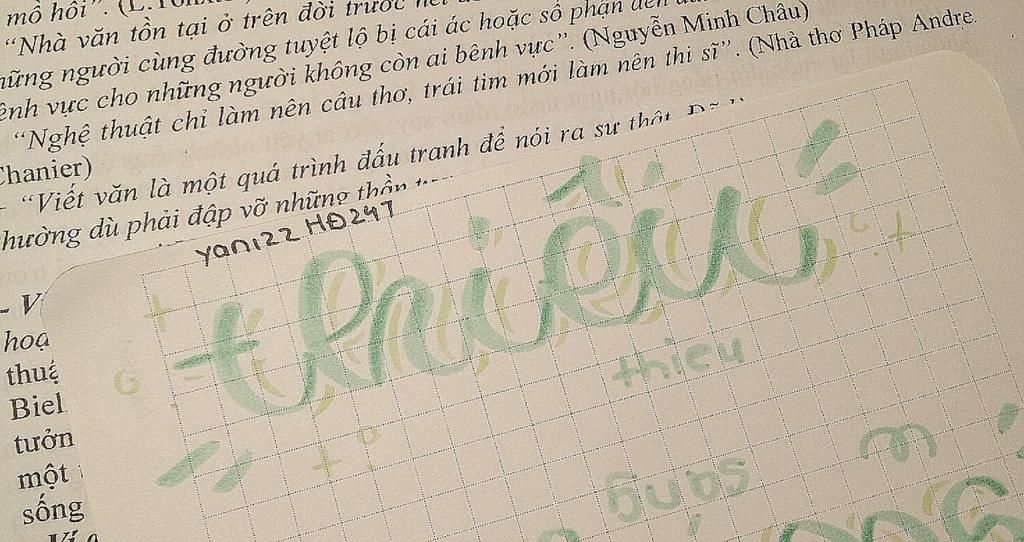 mồ hôi”. (L.
“Nhà văn tồn tại ở trên đời trước
những người cùng đường tuyệt lộ bị cái ác hoặc số phận
bênh vực cho những người không còn ai bênh vực”. (Nguyễn Minh Châu)
“Nghệ thuật chỉ làm nên câu thơ, trái tim mới làm nên thi sĩ”. (Nhà thơ Pháp Andre
Chanier)
- “Viết văn là một quá trình đấu tranh để nói ra sự thật.
thường dù phải đập vỡ những thần
yan122 HĐ247
thiếu
thieu
sang
- V
hoạ
Biel
tưởn
một
sống